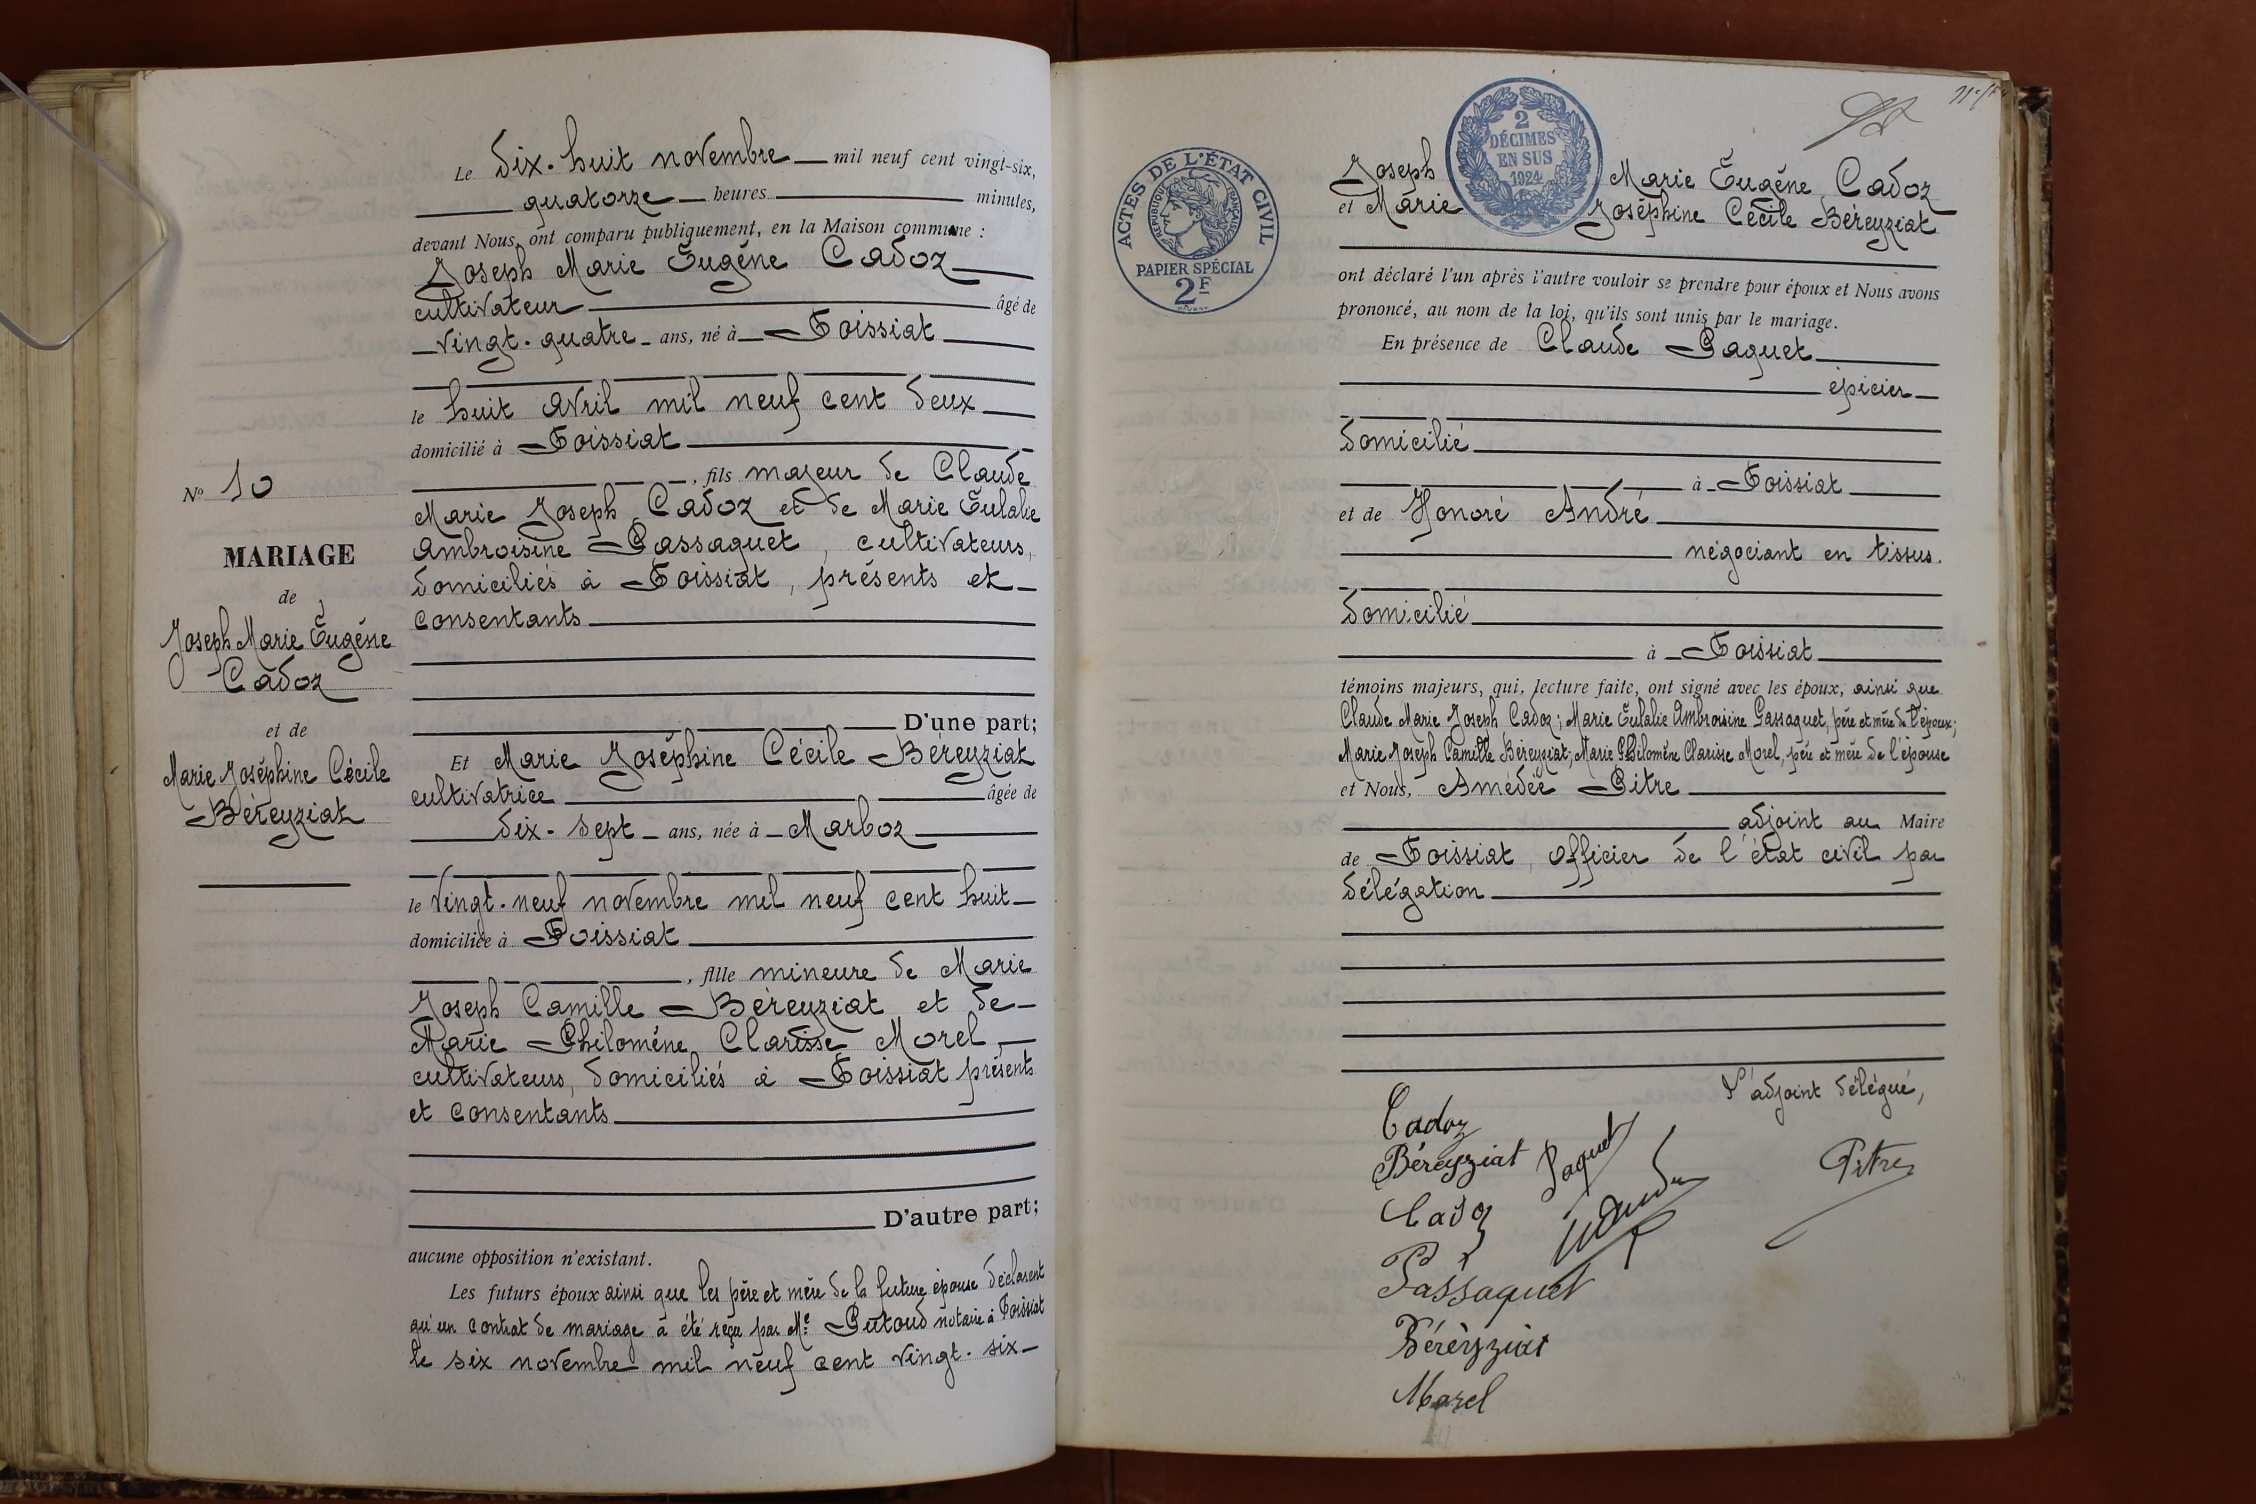 Le dix-huit novembre mil neuf cent vingt-six,
quatorze heures minutes,
devant Nous, ont comparu publiquement, en la Maison commune :
Joseph Marie Eugène Cadoz
cultivateur âgé de
vingt-quatre ans, né à Foissiat
le huit avril mil neuf cent deux
domicilié à Foissiat
, fils majeur de Claude
Marie Joseph Cadoz et de Marie Eulalie
Ambroisine Passaquet, cultivateurs,
domiciliés à Foissiat, présents et
consentants
D'une part;
Et Marie Joséphine Cécile Béreyziat
cultivatrice âgée de
dix-sept ans, née à Marboz
le vingt-neuf novembre mil neuf cent huit
domiciliée à Foissiat
, fille mineure de Marie
Joseph Camille Béreyziat et de
Marie Philomène Clarisse Morel,
cultivateurs, domiciliés à Foissiat présents
et consentants
D'autre part;
aucune opposition n'existant.
Les futurs époux ainsi que les père et mère de la future épouse déclarent
qu'un contrat de mariage a été reçu par Me Putoud notaire à Foissiat
le six novembre mil neuf cent vingt-six
No 10
MARIAGE
de
Joseph Marie Eugène
Cadoz
et de
Marie Joséphine Cécile
Béreyziat
ACTES DE L'ÉTAT CIVIL
RÉPUBLIQUE FRANÇAISE
PAPIER SPÉCIAL
2F
2
DÉCIMES
EN SUS
1924
Joseph Marie Eugène Cadoz
et Marie Joséphine Cécile Béreyziat
ont déclaré l'un après l'autre vouloir se prendre pour époux et Nous avons
prononcé, au nom de la loi, qu'ils sont unis par le mariage.
En présence de Claude Paquet
épicier
domicilié
à Foissiat
et de Honoré André
négociant en tissus.
domicilié
à Foissiat
témoins majeurs, qui, lecture faite, ont signé avec les époux, ainsi que
Claude Marie Joseph Cadoz; Marie Eulalie Ambroisine Passaquet, père et mère de l'époux;
Marie Joseph Camille Béreyziat; Marie Philomène Clarisse Morel, père et mère de l'épouse
et Nous, Amédée Pitre
adjoint au Maire
de Foissiat, officier de l'état civil par
délégation
L'adjoint délégué,
Cadoz
Béreyziat
Paquet
Pitre
Cadoz
Passaquet
Béréyziat
Morel